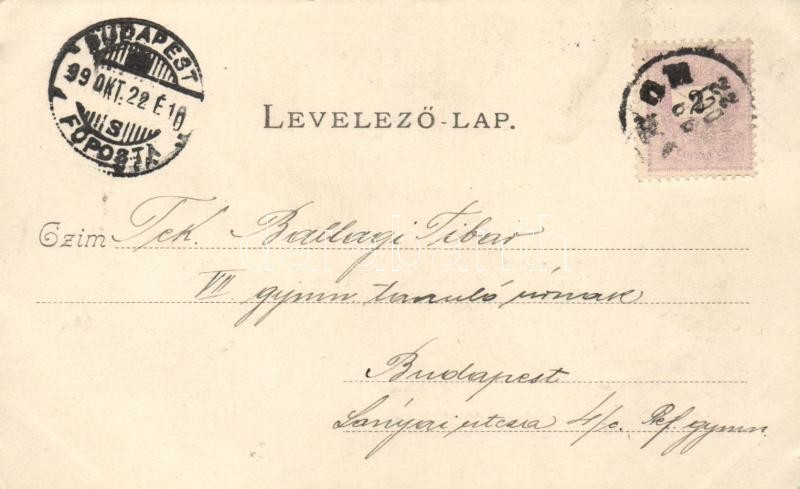 BUDAPEST
99 OKT. 22 É 10
S
FŐPOSTA
2
LEVELEZŐ-LAP.
Czim Tek. Ballagi Tibor
VII gymn. tanuló úrnak
darabanth
Budapest
Lónyai utcza 4/c. Ref. gymn.